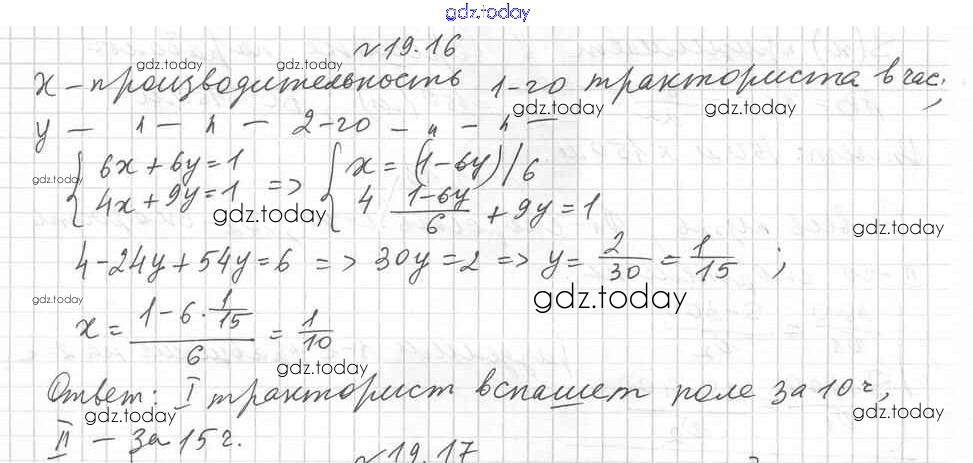 gdz.today
№19.16
gdz.today gdz.today
x – производительность 1-го тракториста в час;
gdz.today gdz.today
y – " – " – 2-го – " – " –
{ 6x + 6y = 1 => { x = (1-6y)/6
gdz.today
{ 4x + 9y = 1 { 4 (1-6y)/6 + 9y = 1
gdz.today gdz.today
4 - 24y + 54y = 6 => 30y = 2 => y = 2/30 = 1/15 ;
gdz.today gdz.today
x = (1 - 6 · 1/15)/6 = 1/10
gdz.today gdz.today
Ответ: I тракторист вспашет поле за 10 ч,
gdz.today gdz.today gdz.today
II – за 15 ч.
№19.17